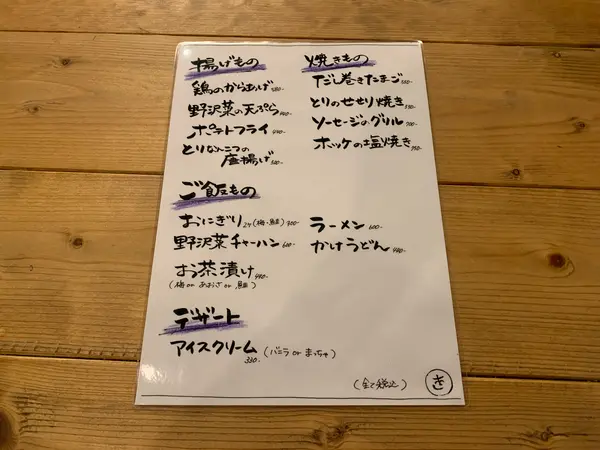 揚げもの
鶏のからあげ
野沢菜の天ぷら
ポテトフライ
とりなんこつの
唐揚げ
焼きもの
だし巻きたまご
とりのせせり焼き
ソーセージのグリル
ホッケの塩焼き
ご飯もの
おにぎり 2ケ(梅・鮭)
野沢菜チャーハン
お茶漬け
(梅 or あおさ or 鮭)
ラーメン 600-
かけうどん
デザート
アイスクリーム (バニラ or まっちゃ)
330-
(全て税込)
き